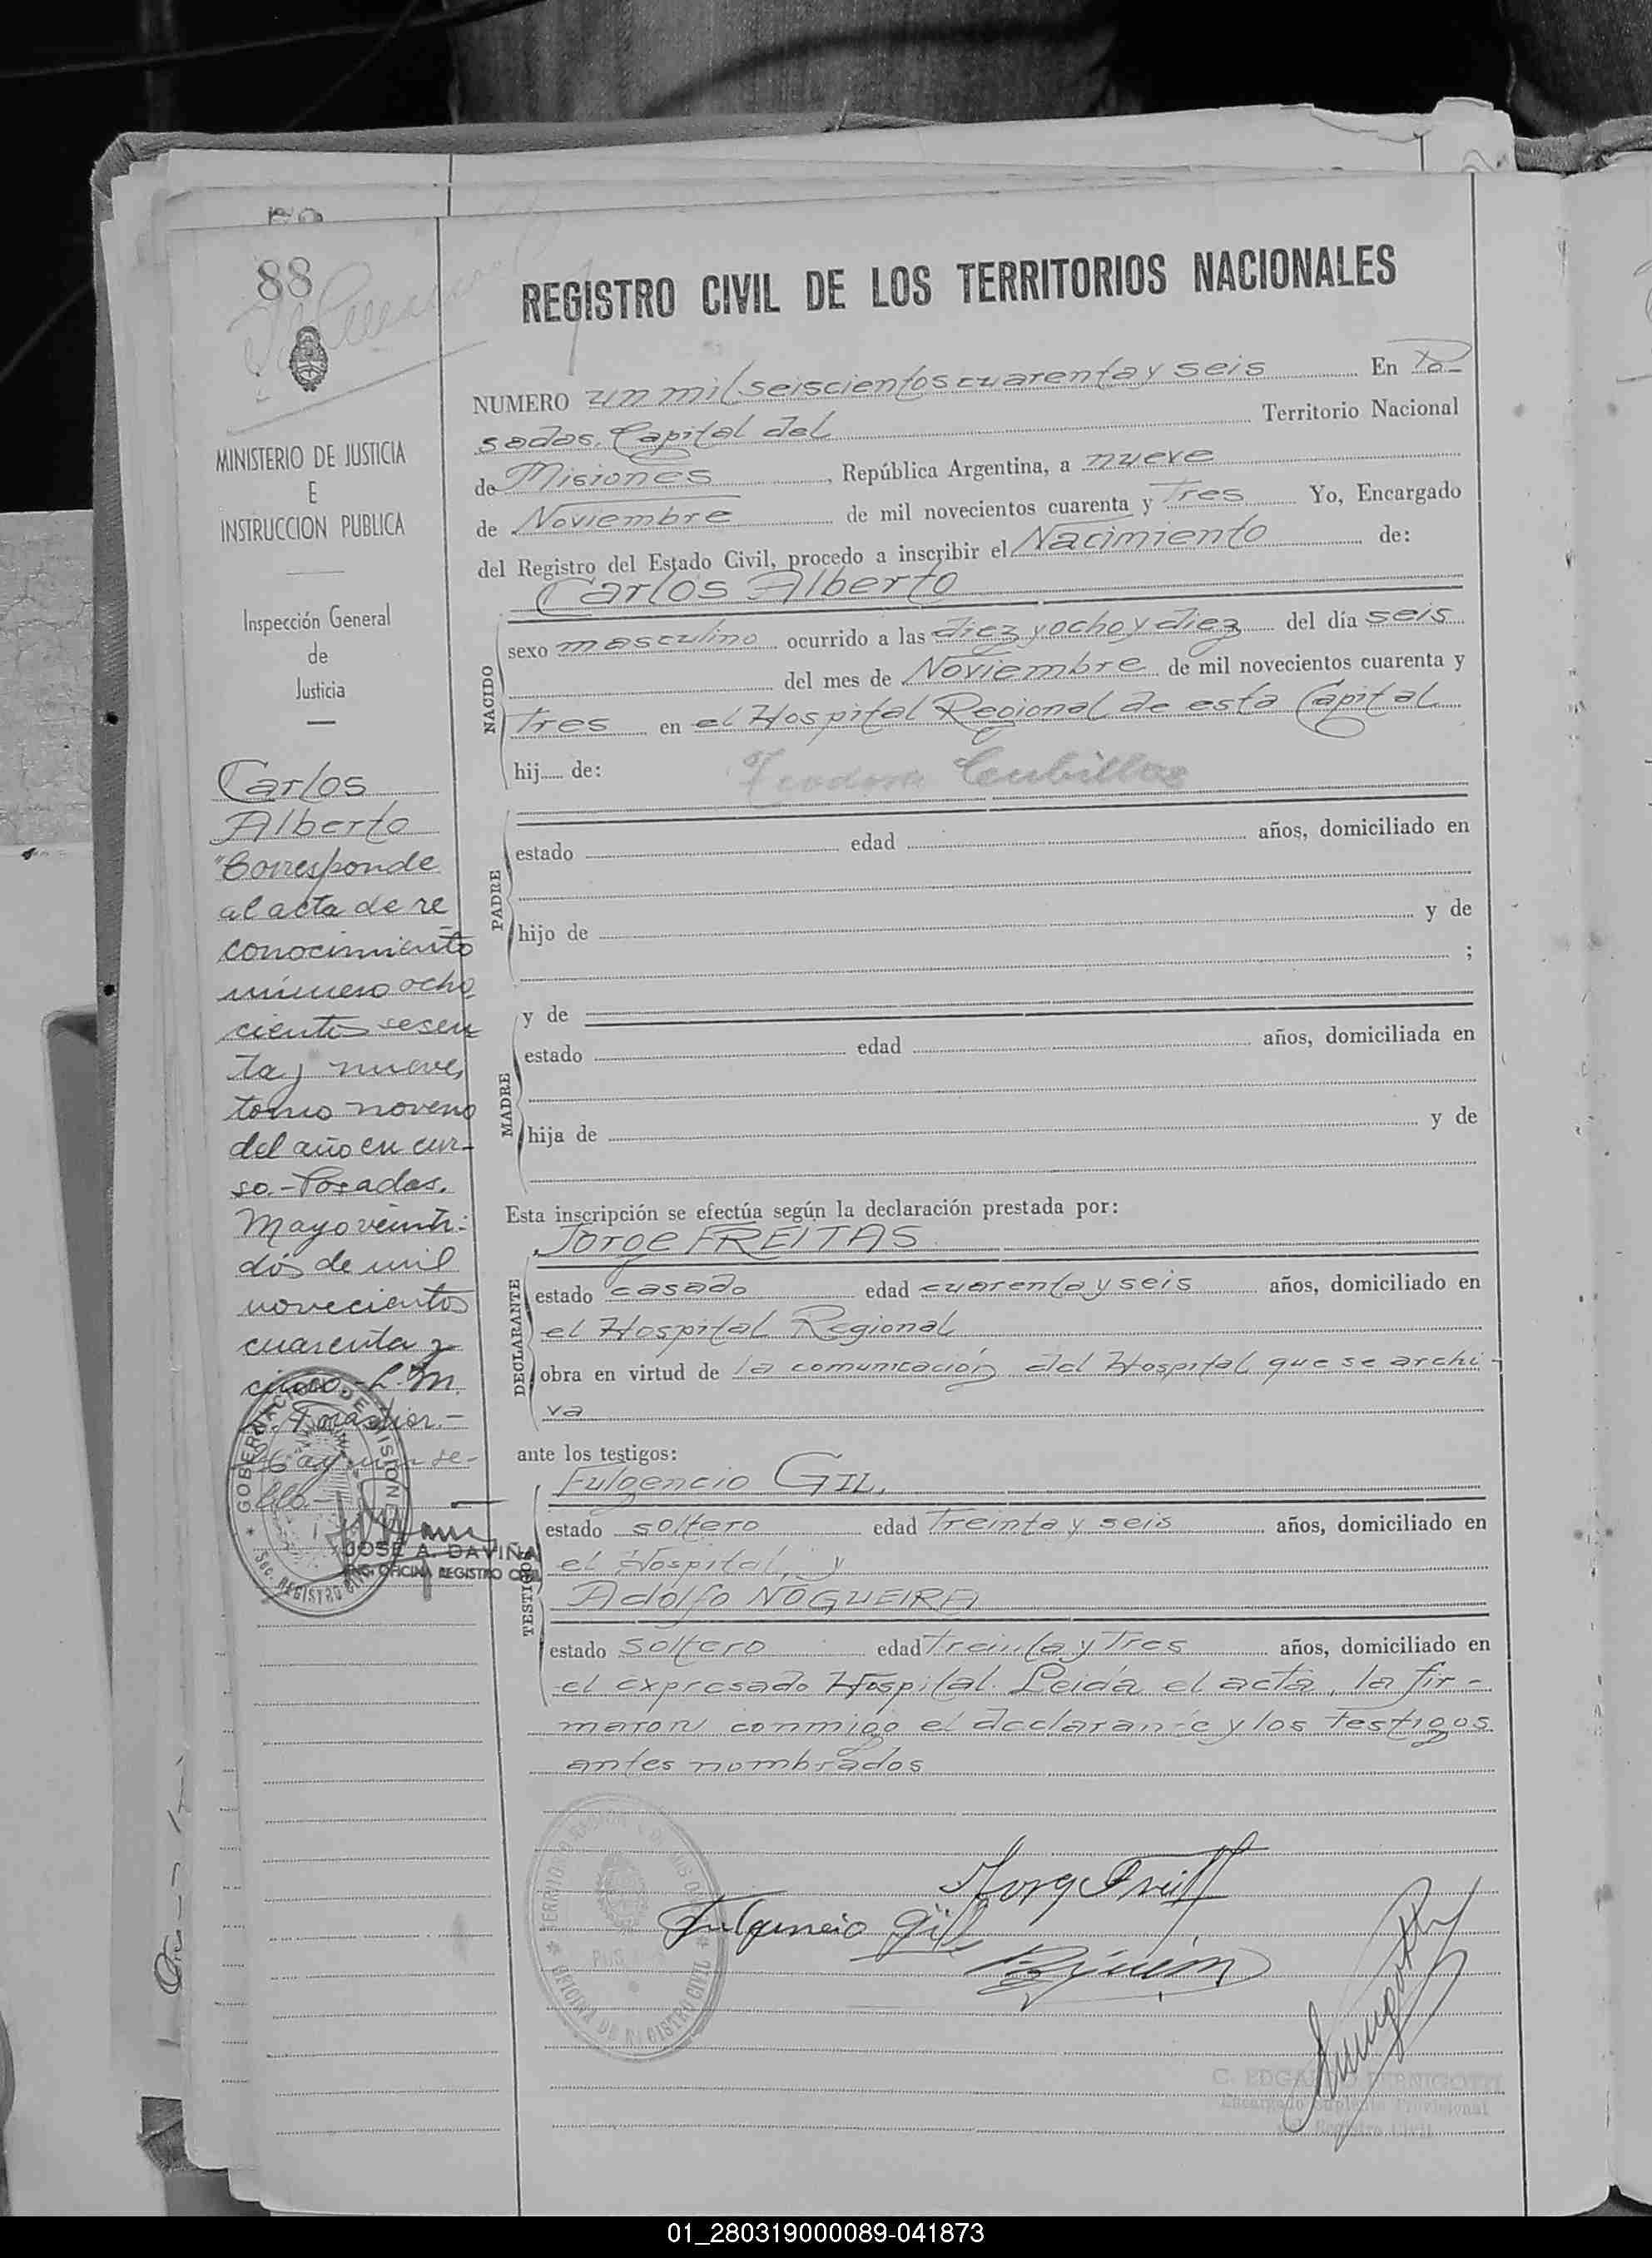 88
MINISTERIO DE JUSTICIA
E
INSTRUCCION PUBLICA
Inspección General
de
Justicia
Carlos
Alberto
"Corresponde
al acta de re
conocimiento
número ocho
cientos sesen
ta y nueve,
tomo noveno
del año en cur-
so.- Posadas.
Mayo veinti-
dós de mil
novecientos
cuarenta y
cinco.- L. M.
Hay un se-
llo.-
GOBERNACION DE MISIONES
Sec. REGISTRO CIVIL
JOSE A. DAVIÑA
ENC. OFICINA REGISTRO CIVIL
REGISTRO CIVIL DE LOS TERRITORIOS NACIONALES
NUMERO un mil seiscientos cuarenta y seis En Po-
sadas, Capital del Territorio Nacional
de Misiones, República Argentina, a nueve
de Noviembre de mil novecientos cuarenta y Tres Yo, Encargado
del Registro del Estado Civil, procedo a inscribir el Nacimiento de:
Carlos Alberto
NACIDO
sexo masculino ocurrido a las diez y ocho y diez del día seis
del mes de Noviembre de mil novecientos cuarenta y
Tres en el Hospital Regional de esta Capital
hij de: Teodora Cubillas
PADRE
estado edad años, domiciliado en
hijo de y de
;
y de
MADRE
estado edad años, domiciliada en
hija de y de
Esta inscripción se efectúa según la declaración prestada por:
Jorge FREITAS
DECLARANTE
estado casado edad cuarenta y seis años, domiciliado en
el Hospital Regional
obra en virtud de la comunicación del Hospital que se archi-
va
ante los testigos:
Fulgencio GIL,
TESTIGOS
estado soltero edad Treinta y seis años, domiciliado en
el Hospital, y
Adolfo NOGUEIRA
estado soltero edad treinta y Tres años, domiciliado en
el expresado Hospital. Leida el acta, la fir-
maron conmigo el declarante y los testigos
antes nombrados
OFICINA DE REGISTRO CIVIL
Jorge Freitas
Fulgencio Gil
C. EDGARDO PERNIGOTTI
Encargado Suplente Provisional
del Registro Civil
01_280319000089-041873